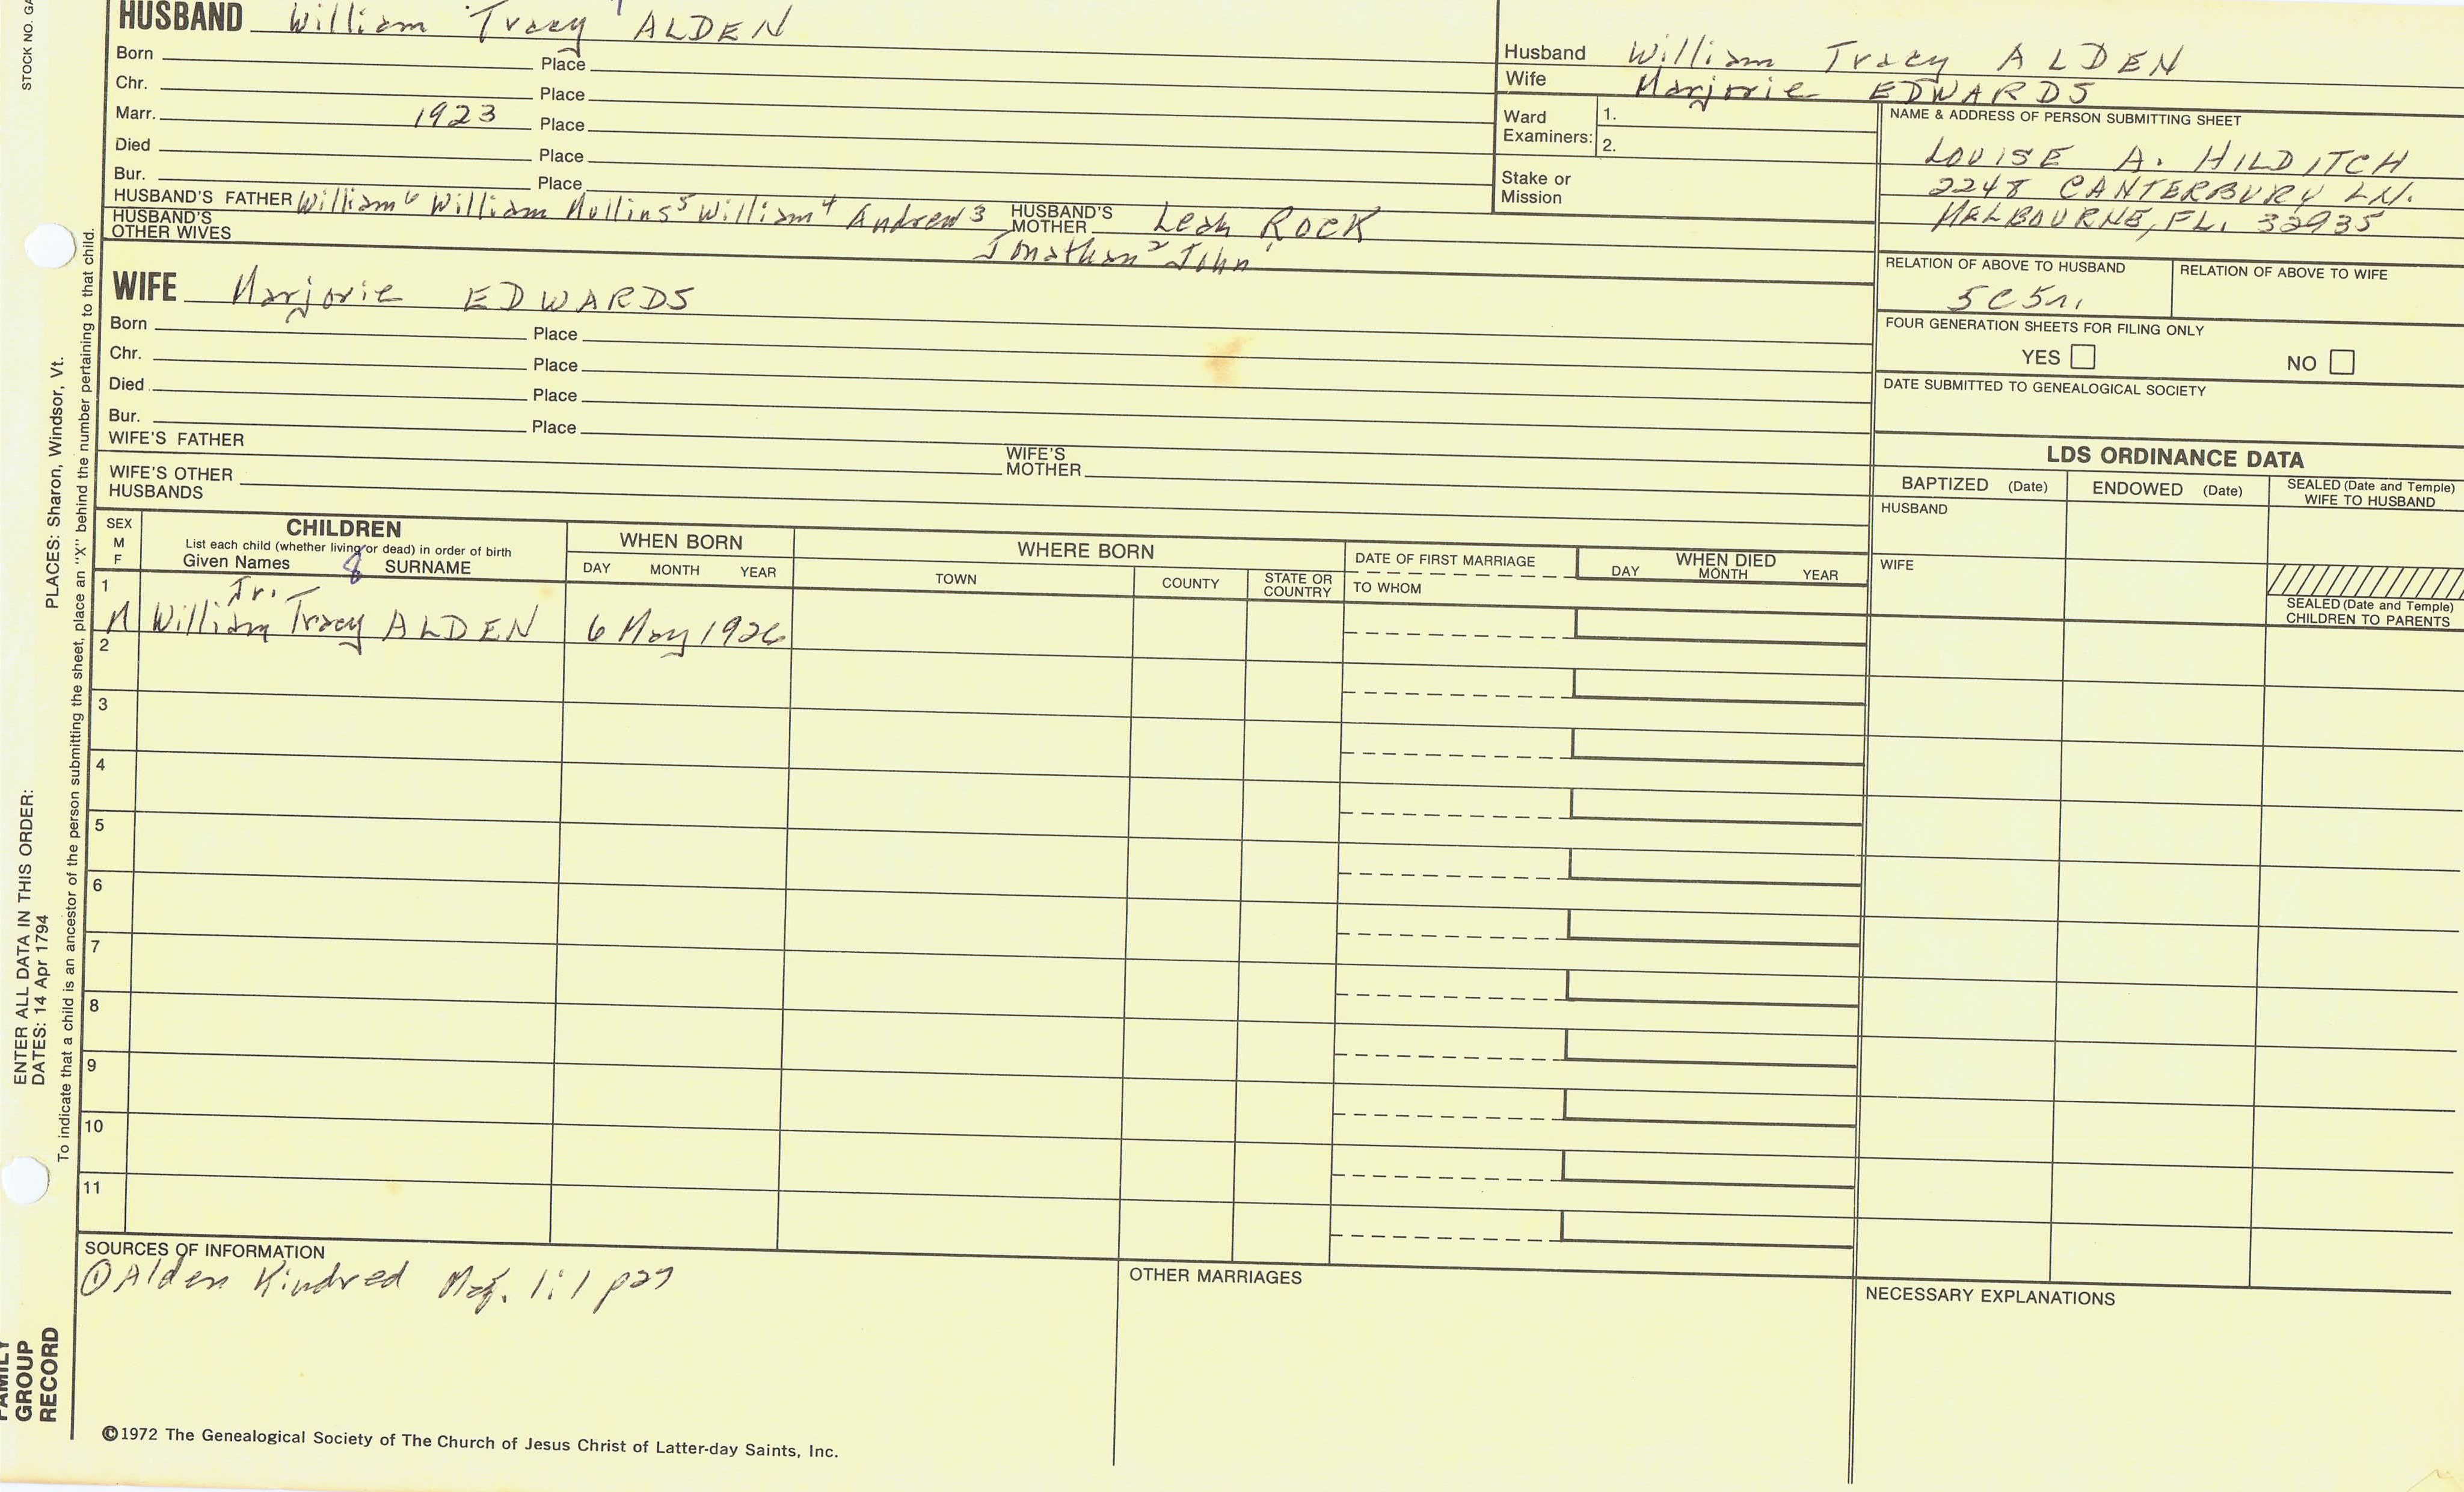 STOCK NO. GA
HUSBAND William Tracy ALDEN
Born Place
Chr. Place
Marr. 1923 Place
Died Place
Bur. Place
HUSBAND'S FATHER William⁶ William Mullins⁵ William⁴ Andrew³ HUSBAND'S MOTHER Leah ROCK
HUSBAND'S OTHER WIVES
Jonathan² John¹
Husband William Tracy ALDEN
Wife Marjorie EDWARDS
Ward Examiners: 1.
2.
Stake or Mission
NAME & ADDRESS OF PERSON SUBMITTING SHEET
LOUISE A. HILDITCH
2248 CANTERBURY LN.
MELBOURNE, FL. 32935
RELATION OF ABOVE TO HUSBAND RELATION OF ABOVE TO WIFE
5C5r.
FOUR GENERATION SHEETS FOR FILING ONLY
YES NO
DATE SUBMITTED TO GENEALOGICAL SOCIETY
WIFE Marjorie EDWARDS
Born Place
Chr. Place
Died Place
Bur. Place
WIFE'S FATHER WIFE'S MOTHER
WIFE'S OTHER HUSBANDS
LDS ORDINANCE DATA
BAPTIZED (Date) ENDOWED (Date) SEALED (Date and Temple) WIFE TO HUSBAND
HUSBAND
WIFE
SEALED (Date and Temple) CHILDREN TO PARENTS
SEX M F
CHILDREN
List each child (whether living or dead) in order of birth
Given Names 8 SURNAME
WHEN BORN
DAY MONTH YEAR
WHERE BORN
TOWN COUNTY STATE OR COUNTRY
DATE OF FIRST MARRIAGE
TO WHOM
WHEN DIED
DAY MONTH YEAR
1
Jr.
M William Tracy ALDEN 6 May 1926
2
3
4
5
6
7
8
9
10
11
SOURCES OF INFORMATION
① Alden Kindred Mag. 1:1 p27
OTHER MARRIAGES
NECESSARY EXPLANATIONS
©1972 The Genealogical Society of The Church of Jesus Christ of Latter-day Saints, Inc.
FAMILY
GROUP
RECORD
ENTER ALL DATA IN THIS ORDER:
DATES: 14 Apr 1794
PLACES: Sharon, Windsor, Vt.
To indicate that a child is an ancestor of the person submitting the sheet, place an "X" behind the number pertaining to that child.